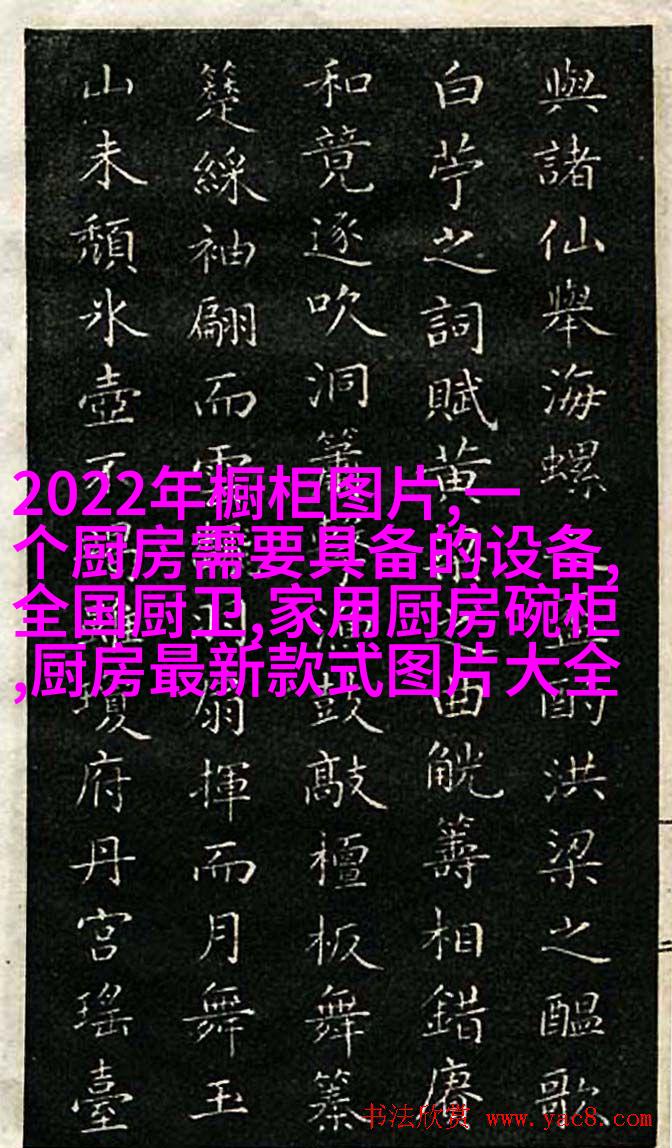 與諸仙舉海螺酌洪梁之醞歌
白苧之詞賦黃之曲觥籌相錯賡
和竟逐吹洞簫鼓敲檀板舞篆
綵袖翩而雲羽扇揮而月舞玉
山未頹氷壺不瓊府丹宮瑤臺
2022年橱柜图片,一
个厨房需要具备的设备,
全国厨卫,家用厨房碗柜
,厨房最新款式图片大全
书法欣赏 www.yac8.com